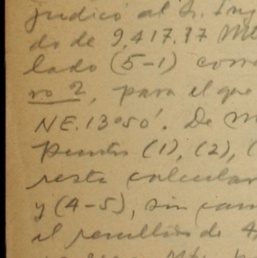 judicó al Sr. Ing
do de 9.417.77 Me
lado (5-1) corre
ro 2, para el que
NE.13°50'. De m
puntos (1), (2), (
resta calcular
y (4-5), sin cam
el resultado de 4